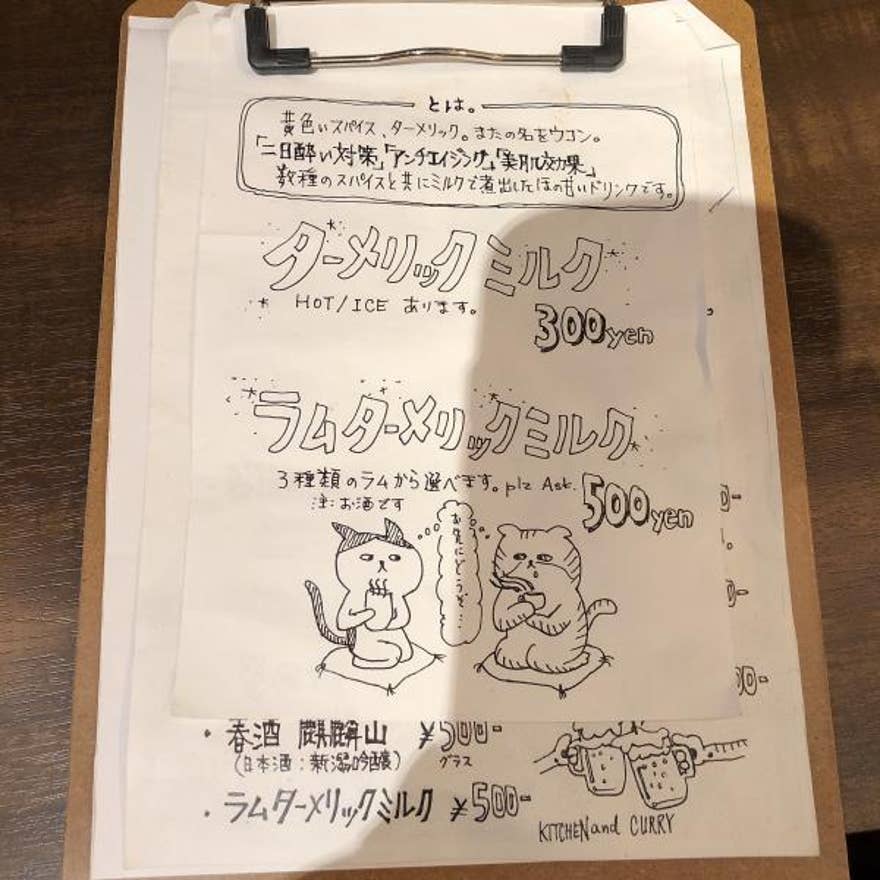 とは。
黄色いスパイス、ターメリック。またの名をウコン。
「二日酔い対策」「アンチエイジング」「美肌効果」
数種のスパイスと共にミルクで煮出したほの甘いドリンクです。
ターメリックミルク
HOT/ICE あります。
300yen
ラムターメリックミルク
3種類のラムから選べます。plz Ask.
注:お酒です
500yen
お先にどうぞ…
・春酒 麒麟山 ¥500-
(日本酒:新潟吟醸) グラス
・ラムターメリックミルク ¥500-
KITCHEN and CURRY